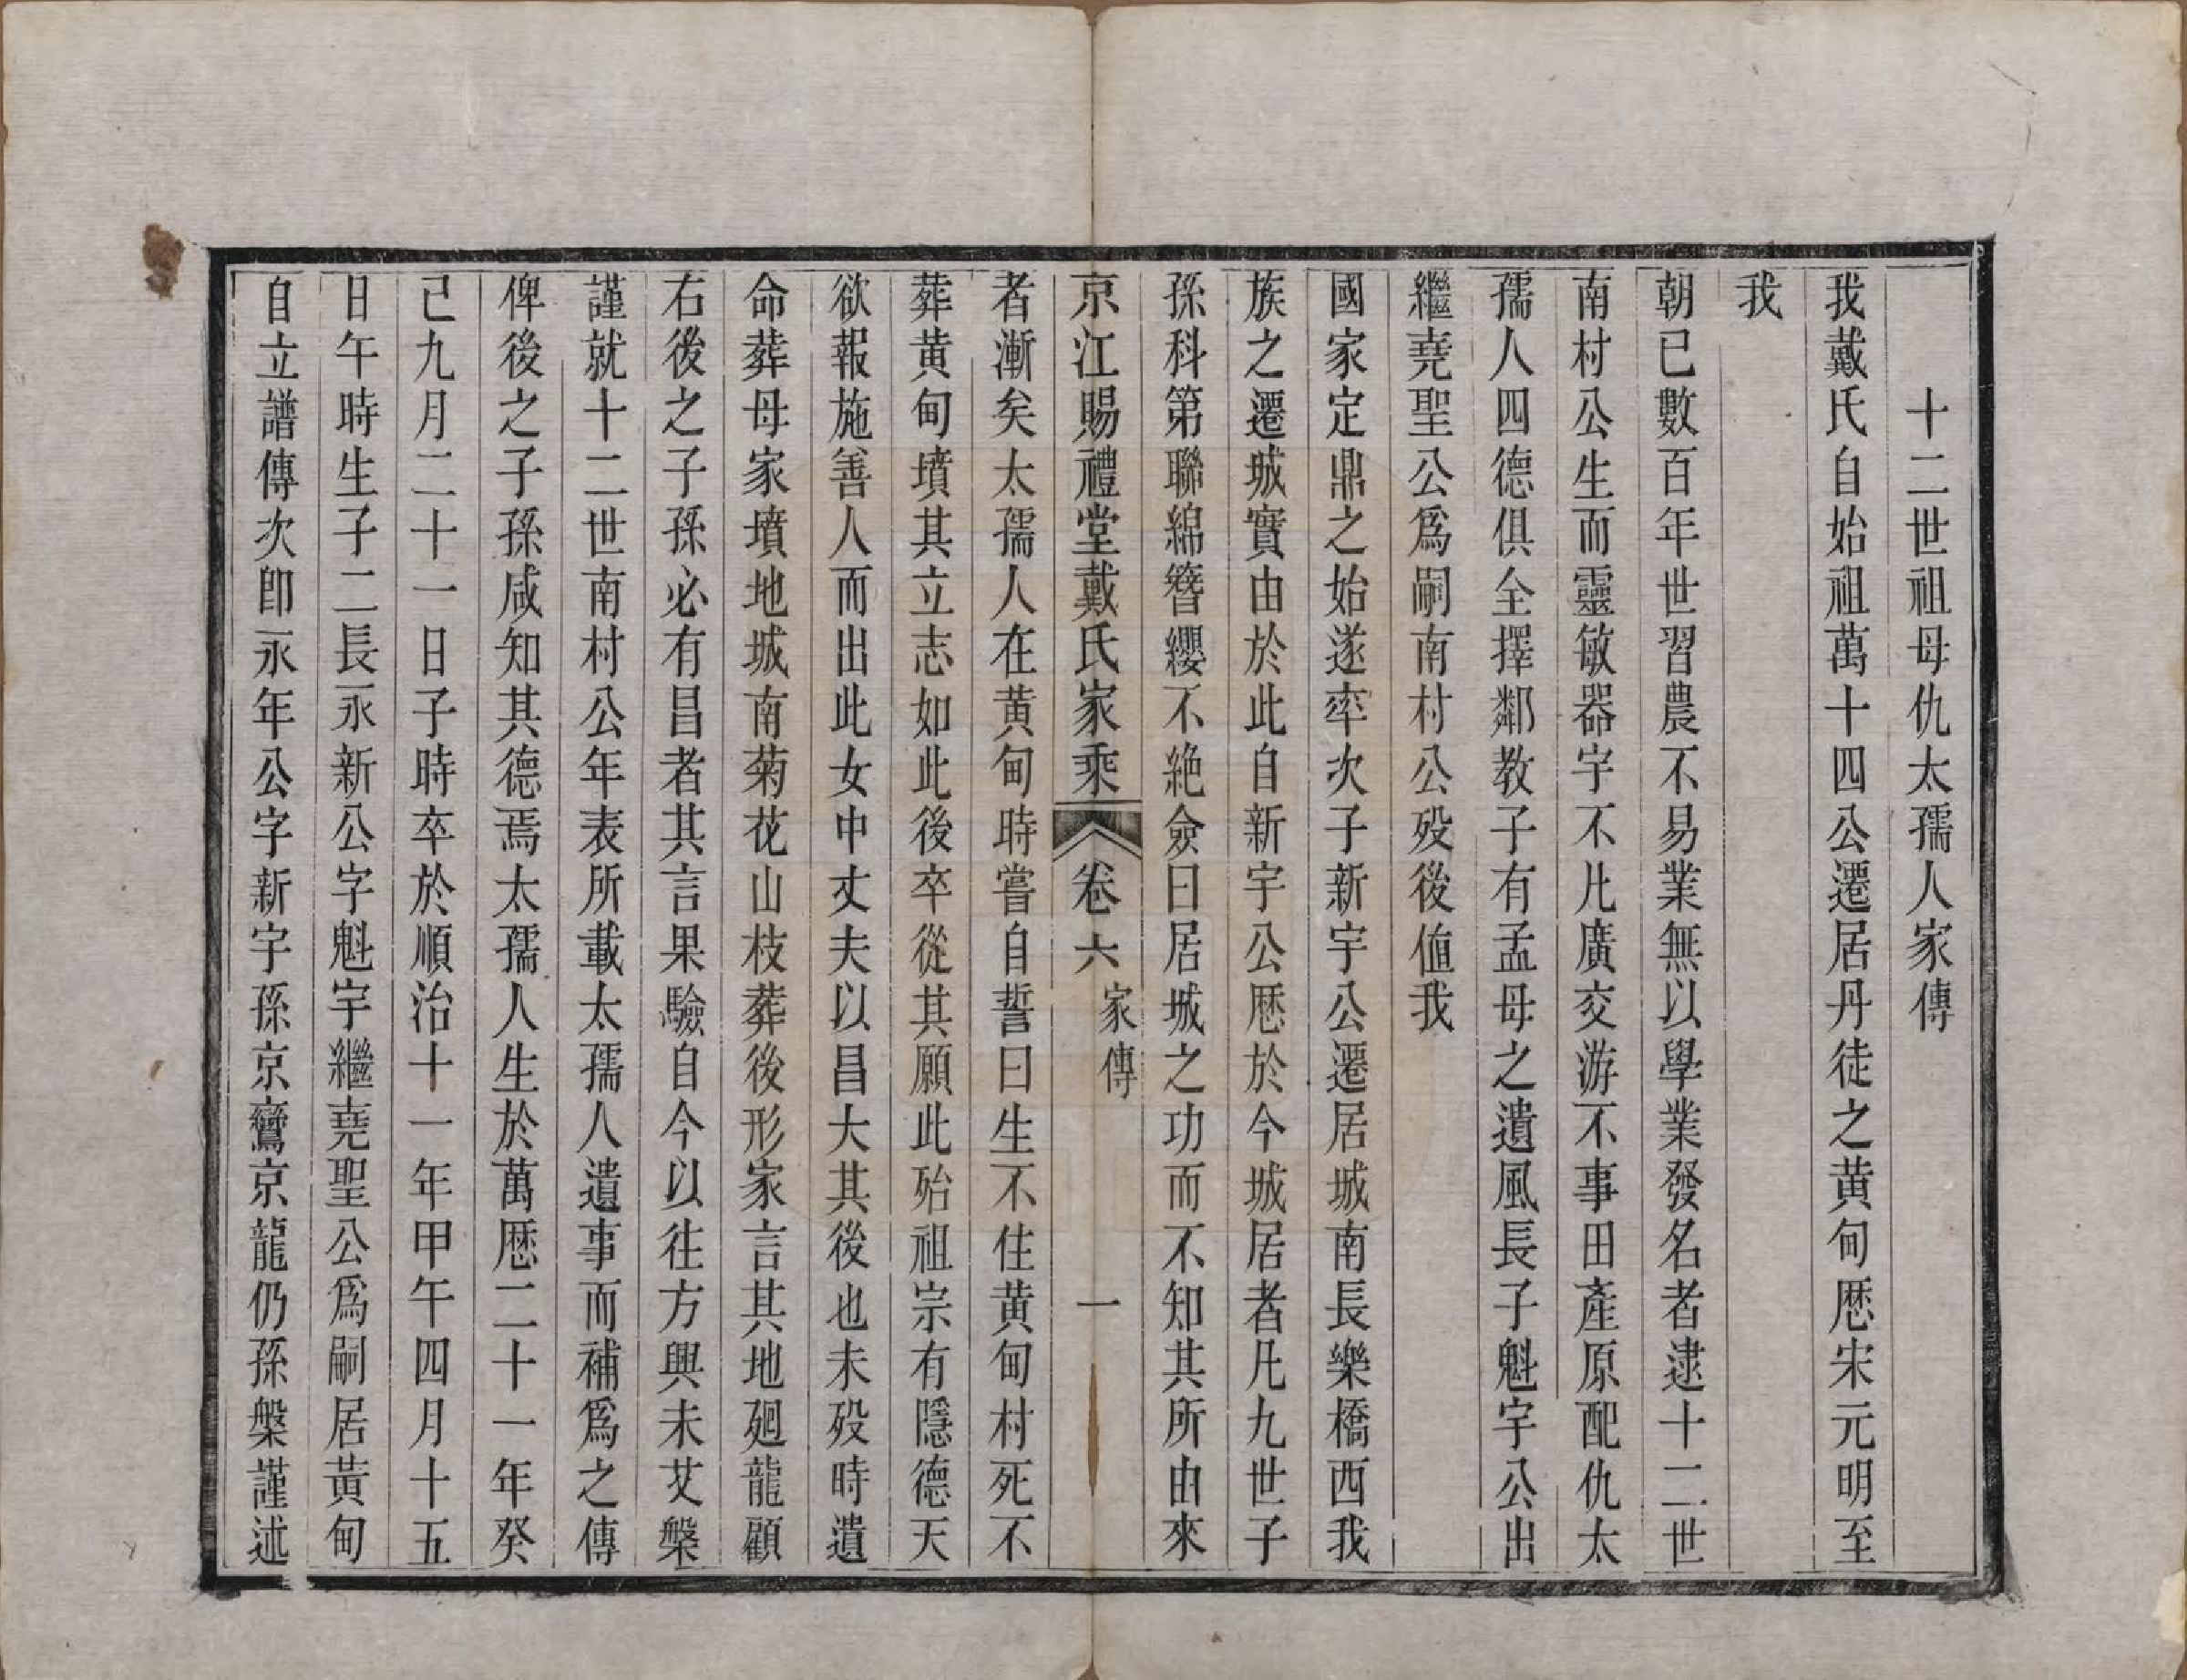 十二世祖母仇太孺人家傳
我戴氏自始祖萬十四公遷居丹徒之黃甸厯宋元明至
我
朝已數百年世習農不易業無以學業發名者逮十二世
南村公生而靈敏器宇不凡廣交游不事田產原配仇太
孺人四德俱全擇鄰教子有孟母之遺風長子魁宇公出
繼堯聖公爲嗣南村公歿後值我
國家定鼎之始遂率次子新宇公遷居城南長樂橋西我
族之遷城實由於此自新宇公厯於今城居者凡九世子
孫科第聯綿簪纓不絶僉曰居城之功而不知其所由來
京江賜禮堂戴氏家乘 卷六 家傳 一
者漸矣太孺人在黃甸時嘗自誓曰生不住黃甸村死不
葬黃甸墳其立志如此後卒從其願此殆祖宗有隱德天
欲報施善人而出此女中丈夫以昌大其後也未歿時遺
命葬母家墳地城南菊花山枝葬後形家言其地廻龍顧
右後之子孫必有昌者其言果驗自今以往方興未艾槃
謹就十二世南村公年表所載太孺人遺事而補爲之傳
俾後之子孫咸知其德焉太孺人生於萬厯二十一年癸
已九月二十一日子時卒於順治十一年甲午四月十五
日午時生子二長永新公字魁宇繼堯聖公爲嗣居黃甸
自立譜傳次卽永年公字新宇孫京鸞京龍仍孫槃謹述